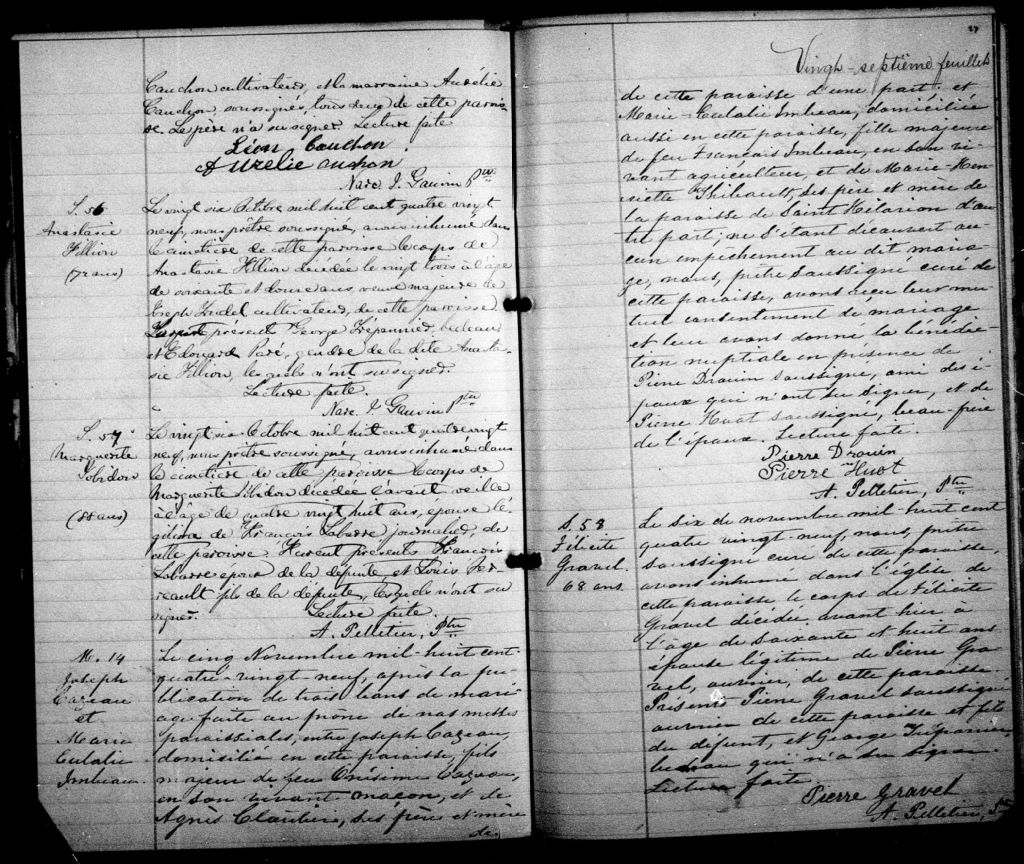 Cauchon cultivateurs, et la marraine Aurélie
Cauchon soussignés, tous deux de cette parois-
se. Le père n'a su signer. Lecture faite
Léon Cauchon
Aurélie Cauchon
Narc. J. Gauvin Ptre
S. 56
Anastasie
Fillion
(72 ans)
Le vingt six Octobre mil huit cent quatre vingt
neuf, nous prêtre soussigné, avons inhumé dans
le cimetière de cette paroisse le corps de
Anastasie Fillion décédée le vingt trois à l'âge
de soixante et douze ans, veuve majeure de
Joseph Trudel cultivateur, de cette paroisse.
présent George Trépannier, bedeau
et Edouard Paré, gendre de la dite Anasta-
sie Fillion, lesquels n'ont su signer.
Lecture faite.
Narc. J. Gauvin Ptre
S. 57
Marguerite
Sobidon
(88 ans)
Le vingt six Octobre mil huit cent quatre vingt
neuf, nous prêtre soussigné, avons inhumé dans
le cimetière de cette paroisse le corps de
Marguerite décédée l'avant veille
à l'âge de quatre vingt huit ans, épouse lé-
gitime de François Labarre journalier, de
cette paroisse. Furent présents François
Labarre époux de la défunte, et Louis
fils de la défunte, lesquels n'ont su
signer.
Lecture faite.
A. Pelletier, Ptre
M. 14
Joseph
Cazeau
et
Marie
Eulalie
Imbeau.
Le cinq Novembre mil-huit cent-
quatre-vingt-neuf, après la pu-
blication de trois bans de mari-
age faite au prône de nos messes
paroissiales, entre Joseph Cazeau,
domicilié en cette paroisse, fils
majeur de feu Onésime Cazeau,
en son vivant maçon, et de
Agnès Cloutier, ses père et mère
de
27
Vingt-septième feuillet
de cette paroisse d'une part; et
Marie-Eulalie Imbeau, domiciliée
aussi en cette paroisse, fille majeure
de feu François Imbeau, en son vi-
vant agriculteur, et de Marie-Hen-
riette Thibault, ses père et mère de
la paroisse de Saint Hilarion d'au-
tre part; ne s'étant découvert au-
cun empêchement au dit maria-
ge, nous, prêtre soussigné curé de
cette paroisse, avons reçu leur mu-
tuel consentement de mariage
et leur avons donné la bénédic-
tion nuptiale en présence de
Pierre Drouin soussigné, ami des é-
poux qui n'ont su signer, et de
Pierre Huot soussigné, beau-frère
de l'époux. Lecture faite.
Pierre Drouin
Pierre Huot
A. Pelletier, Ptre
S. 58
Félicité
Gravel
68 ans.
Le six de novembre mil-huit cent
quatre vingt-neuf, nous, prêtre
soussigné curé de cette paroisse,
avons inhumé dans l'église de
cette paroisse le corps de Félicité
Gravel décédée avant hier à
l'âge de soixante et huit ans
épouse légitime de Pierre Gra-
vel, ouvrier, de cette paroisse
Présents Pierre Gravel soussigné
ouvrier de cette paroisse et fils
du défunt, et George Trépanier,
bedeau qui n'a su signer.
Lecture faite
Pierre Gravel
A. Pelletier, Ptre